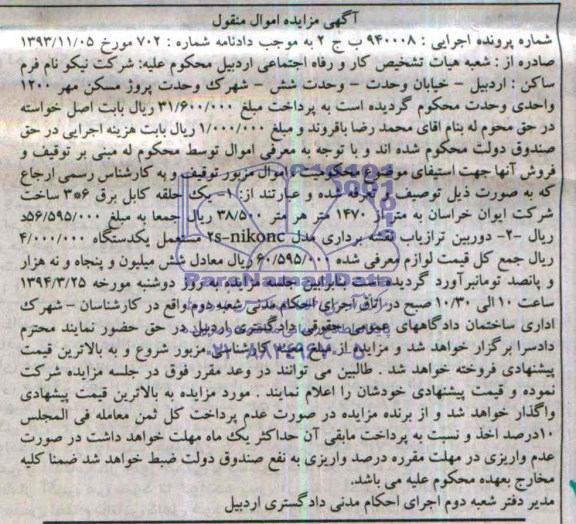 آگهی مزایده اموال منقول
شماره پرونده اجرایی : ۹۴۰۰۰۸ ب ج ۲ به موجب دادنامه شماره : ۷۰۲ مورخ ۱۳۹۳/۱۱/۰۵
صادره از : شعبه هیات تشخیص کار و رفاه اجتماعی اردبیل محکوم علیه: شرکت نیکو نام فرم
ساکن : اردبیل - خیابان وحدت - وحدت شش - شهرک وحدت پروژ مسکن مهر ۱۲۰۰
واحدی وحدت محکوم گردیده است به پرداخت مبلغ ۳۱/۶۰۰/۰۰۰ ریال بابت اصل خواسته
در حق محوم له بنام اقای محمد رضا باقروند و مبلغ ۱/۰۰۰/۰۰۰ ریال بابت هزینه اجرایی در حق
صندوق دولت محکوم شده اند و با توجه به معرفی اموال توسط محکوم له مبنی بر توقیف و
فروش آنها جهت استیفای موضوع محکومیت اموال مزبور توقیف و به کارشناس رسمی ارجاع
که به صورت ذیل توصیف معرفه شده و عبارتند از: ۱- یک حلقه کابل برق ۶*۳ ساخت
شرکت ایوان خراسان به متراژ ۱۴۷۰ متر هر متر ۳۸/۵۰۰ ریال جمعا به مبلغ ۵۶/۵۹۵/۰۰۰
ریال -۲- دوربین ترازیاب نقشه برداری مدل ۲s-nikonc مستعمل یکدستگاه ۴/۰۰۰/۰۰۰
ریال جمع کل قیمت لوازم معرفی شده ۶۰/۵۹۵/۰۰۰ ریال معادل شش میلیون و پنجاه و نه هزار
و پانصد تومانبرآورد گردیده است بنابراین جلسه مزایده در روز دوشنبه مورخه ۱۳۹۴/۳/۲۵
ساعت ۱۰ الی ۱۰/۳۰ صبح در اتاق اجرای احکام مدنی شعبه دوم واقع در کارشناسان - شهرک
اداری ساختمان دادگاههای عمومی حقوقی دادگستری اردبیل در حق حضور نمایند محترم
دادسرا برگزار خواهد شد و مزایده از مبلغ کارشناسی مزبور شروع و به بالاترین قیمت
پیشنهادی فروخته خواهد شد . طالبین می توانند در وعد مقرر فوق در جلسه مزایده شرکت
نموده و قیمت پیشنهادی خودشان را اعلام نمایند . مورد مزایده به بالاترین قیمت پیشهادی
واگذار خواهد شد و از برنده مزایده در صورت عدم پرداخت کل ثمن معامله فی المجلس
۱۰درصد اخذ و نسبت به پرداخت مابقی آن حداکثر یک ماه مهلت خواهد داشت در صورت
عدم واریزی در مهلت مقرره درصد واریزی به نفع صندوق دولت ضبط خواهد شد ضمنا کلیه
مخارج بعهده محکوم علیه می باشد.
مدیر دفتر شعبه دوم اجرای احکام مدنی دادگستری اردبیل
ParsNamadData